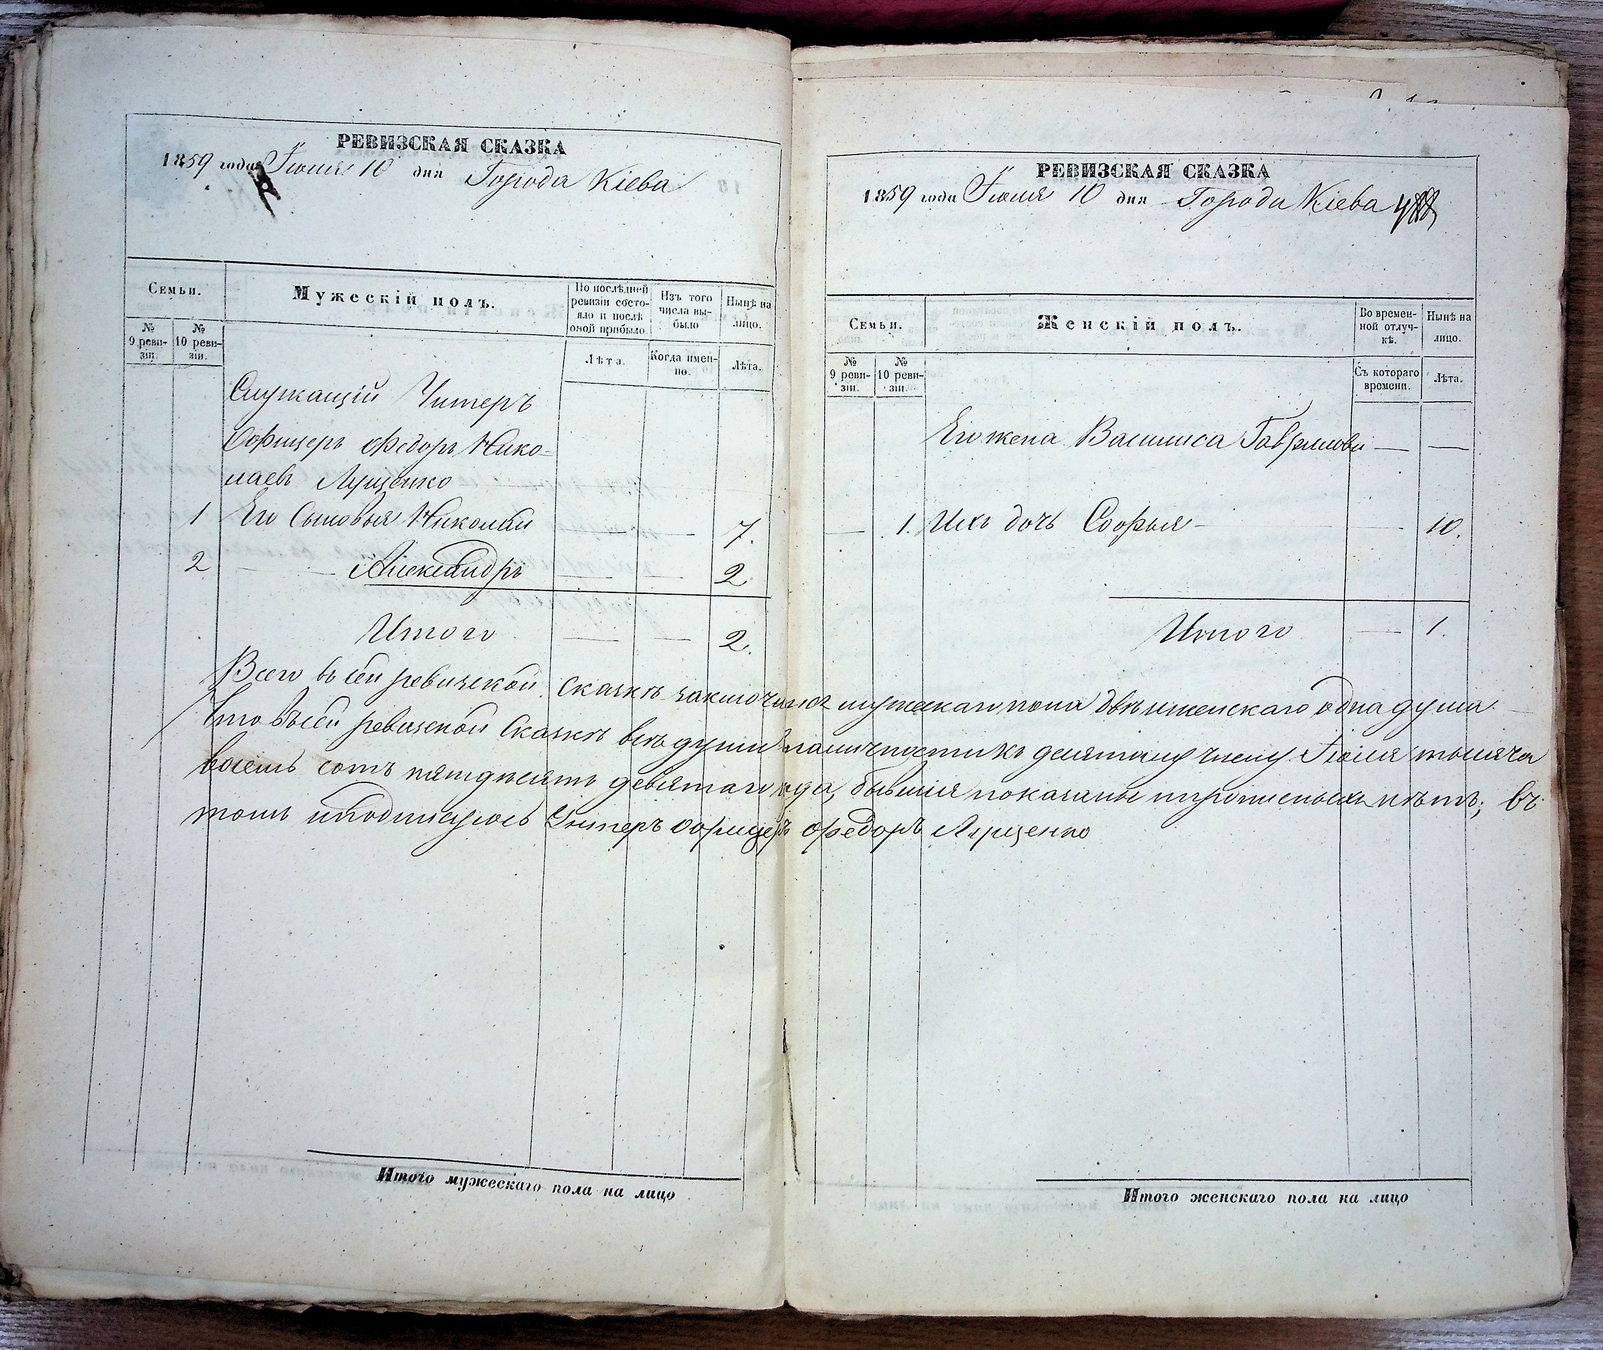 РЕВИЗСКАЯ СКАЗКА
1859 года Іюня 10 дня Города Кіева
Семьи.
Мужескій полъ.
По послѣдней ревизіи состояло и послѣ оной прибыло.
Изъ того числа выбыло
Нынѣ на лицо.
№ 9 ревизіи.
№ 10 ревизіи.
Лѣта.
Когда именно.
Лѣта.
Служащій Унтеръ
Офицеръ Федоръ Нико-
лаевъ Лущенко
1 Его Сыновья Николай — — 7.
2 — — Александръ — — 2.
Итого — — 2.
РЕВИЗСКАЯ СКАЗКА
1859 года Іюня 10 дня Города Кіева
Семьи.
Женскій полъ.
Во временной отлучкѣ.
Нынѣ на лицо.
№ 9 ревизіи.
№ 10 ревизіи.
Съ котораго времени.
Лѣта.
Его жена Василиса Гаврилова — —
— 1. Ихъ дочь Софья — — 10.
Итого — 1.
Всего въ сей ревизской Сказкѣ заключается мужескаго пола двѣ и женскаго одна душа
Что въ сей ревизской Сказкѣ всѣ души въ наличности къ десятому числу Іюня тысяча
восемь сотъ пятдесятъ девятаго года, бывшія показаны и прописныхъ нѣтъ; въ
томъ и подписуюсь Унтеръ Офицеръ Федоръ Лущенко
Итого мужескаго пола на лицо
Итого женскаго пола на лицо